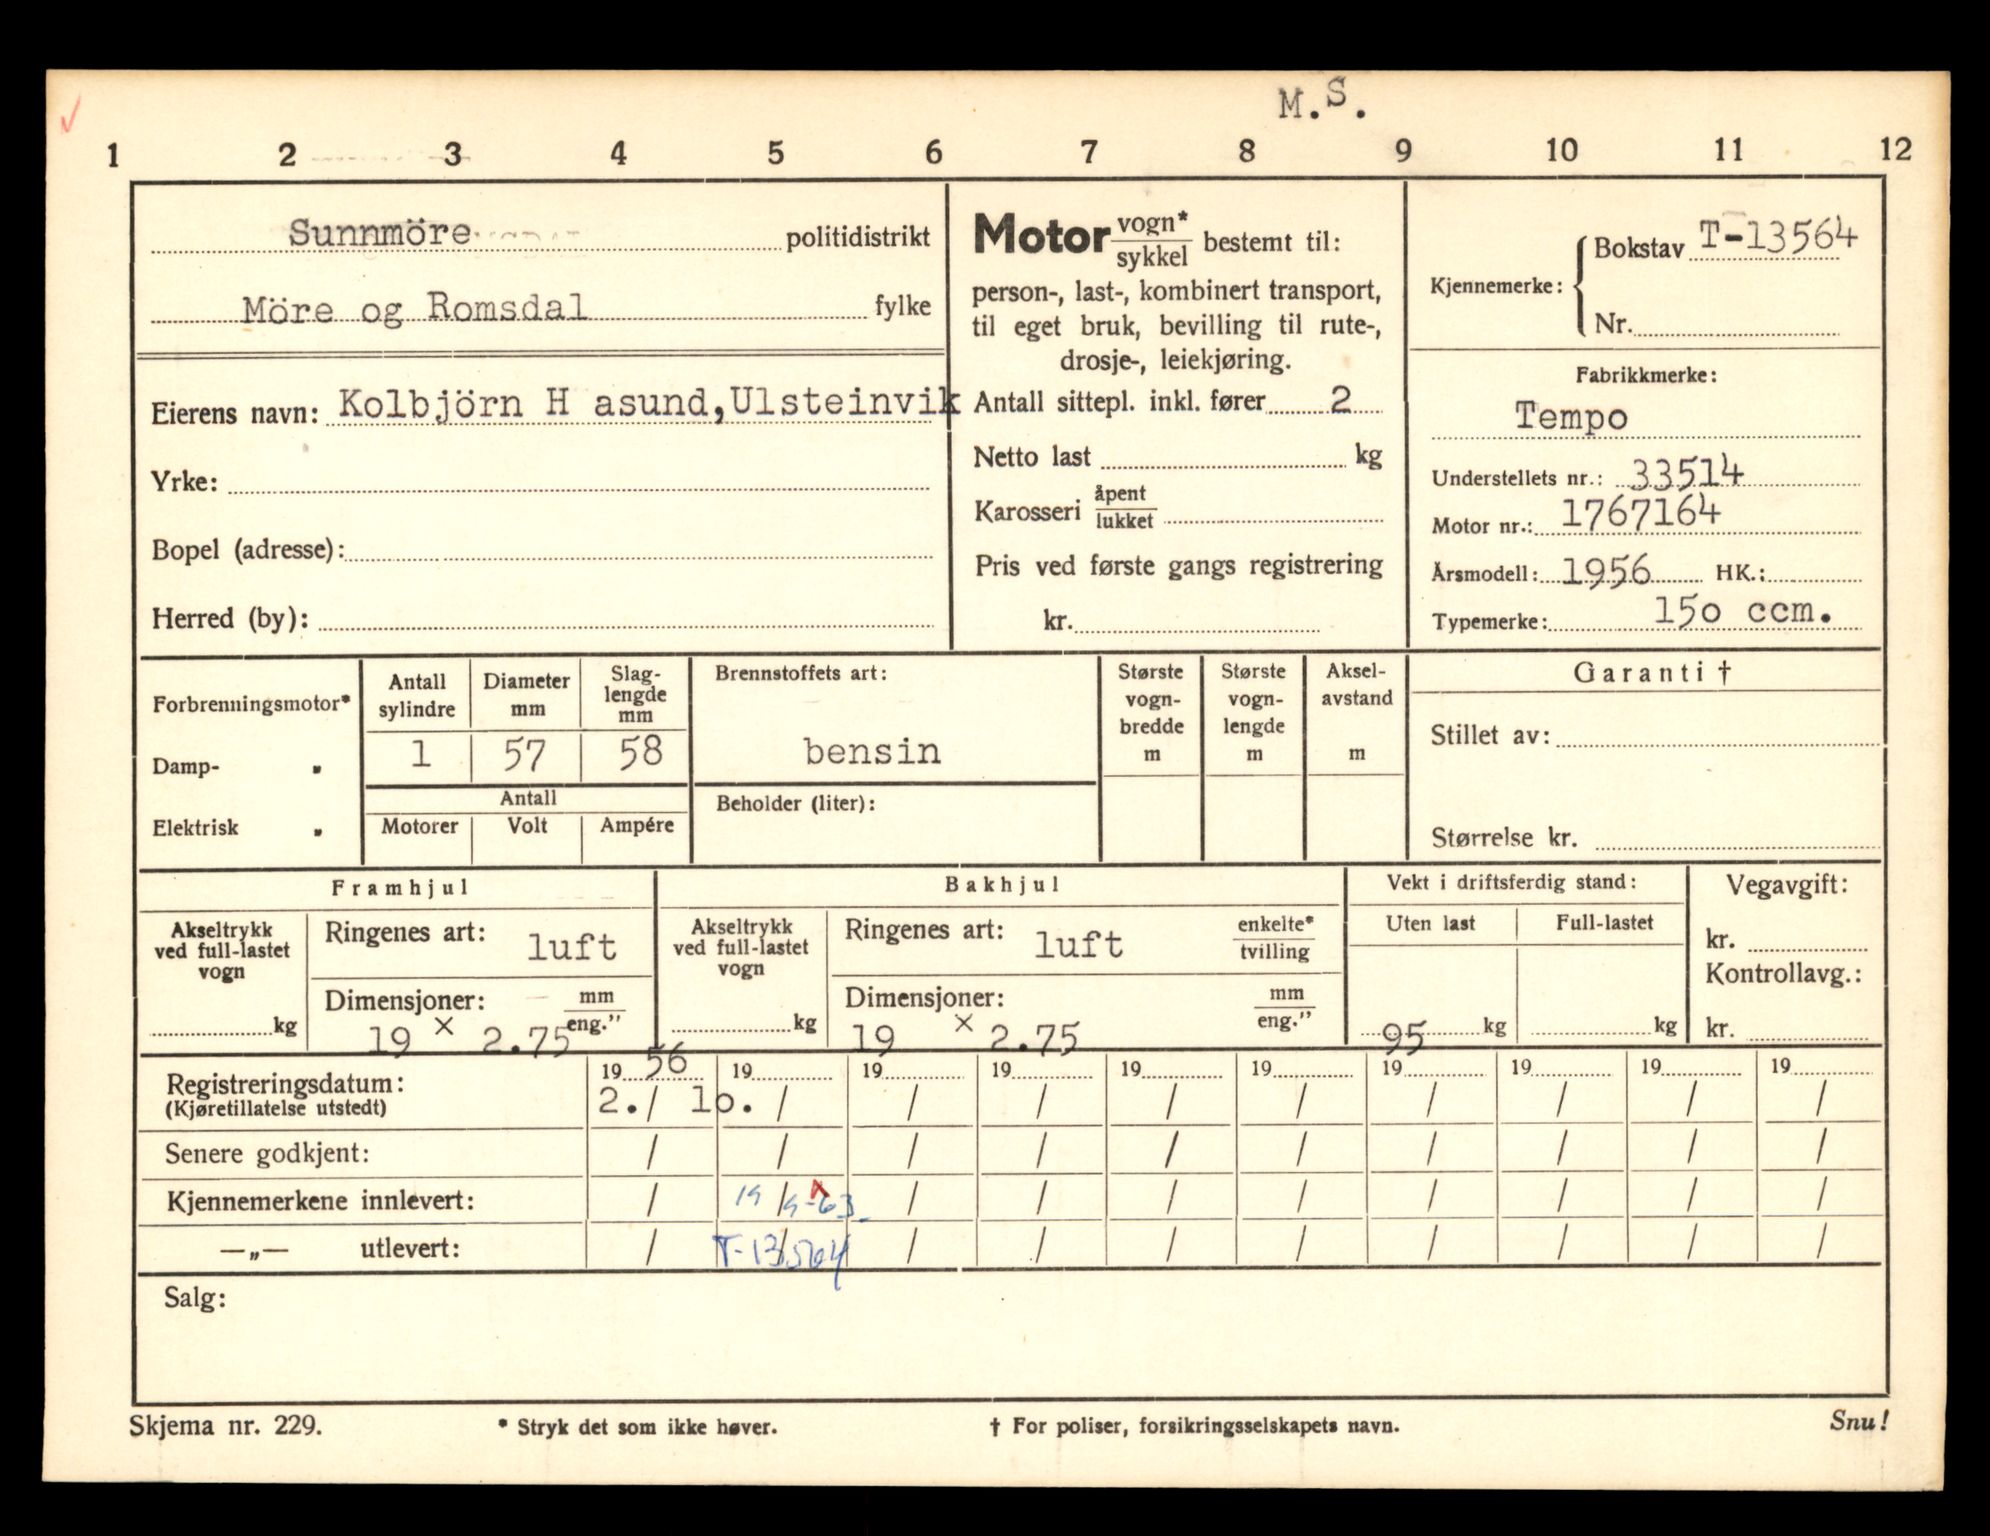 M.S.
1 2 3 4 5 6 7 8 9 10 11 12
Sunnmöre politidistrikt
Möre og Romsdal fylke
Eierens navn: Kolbjörn H asund, Ulsteinvik
Yrke:
Bopel (adresse):
Herred (by):
Motor vogn* / sykkel bestemt til:
person-, last-, kombinert transport,
til eget bruk, bevilling til rute-,
drosje-, leiekjøring.
Antall sittepl. inkl. fører 2
Netto last kg
Karosseri åpent / lukket
Pris ved første gangs registrering
kr.
Kjennemerke: Bokstav T-13564
Nr.
Fabrikkmerke:
Tempo
Understellets nr.: 33514
Motor nr.: 1767164
Årsmodell: 1956 HK.:
Typemerke: 15o ccm.
Forbrenningsmotor*
Damp- "
Elektrisk "
Antall sylindre
1
Diameter mm
57
Slag-lengde mm
58
Antall
Motorer Volt Ampére
Brennstoffets art:
bensin
Beholder (liter):
Største vogn-bredde m
Største vogn-lengde m
Aksel-avstand m
Garanti †
Stillet av:
Størrelse kr.
Framhjul
Akseltrykk ved full-lastet vogn
kg
Ringenes art: luft
Dimensjoner: mm / eng."
19 x 2.75
Bakhjul
Akseltrykk ved full-lastet vogn
kg
Ringenes art: luft enkelte* / tvilling
Dimensjoner: mm / eng."
19 x 2.75
Vekt i driftsferdig stand:
Uten last Full-lastet
95 kg kg
Vegavgift:
kr.
Kontrollavg.:
kr.
Registreringsdatum: 19 56 19 19 19 19 19 19 19 19 19
(Kjøretillatelse utstedt) 2. / 1o. / / / / / / / / /
Senere godkjent: / / / / / / / / / /
Kjennemerkene innlevert: / 19/9-63 / / / / / / / /
—„— utlevert: / T-13564 / / / / / / / /
Salg:
Skjema nr. 229. * Stryk det som ikke høver. † For poliser, forsikringsselskapets navn. Snu!